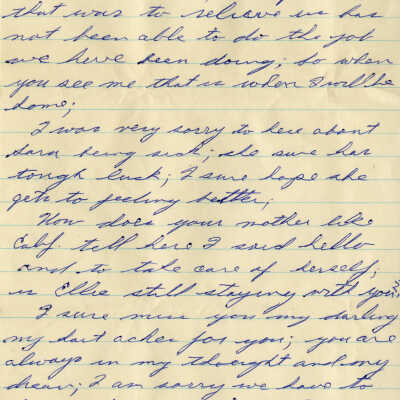 that was to relieve us has
not been able to do the job
we have been doing; so when
you see me that is when I will be
home;
I was very sorry to here about
Sara being sick; she sure has
tough luck; I sure hope she
gets to feeling better;
How does your mother like
Calf. tell here I said hello
and to take care of herself;
is Ellie still staying with you;
I sure miss you my darling
my hart aches for you; you are
always in my thought and my
dream; I am sorry we have to